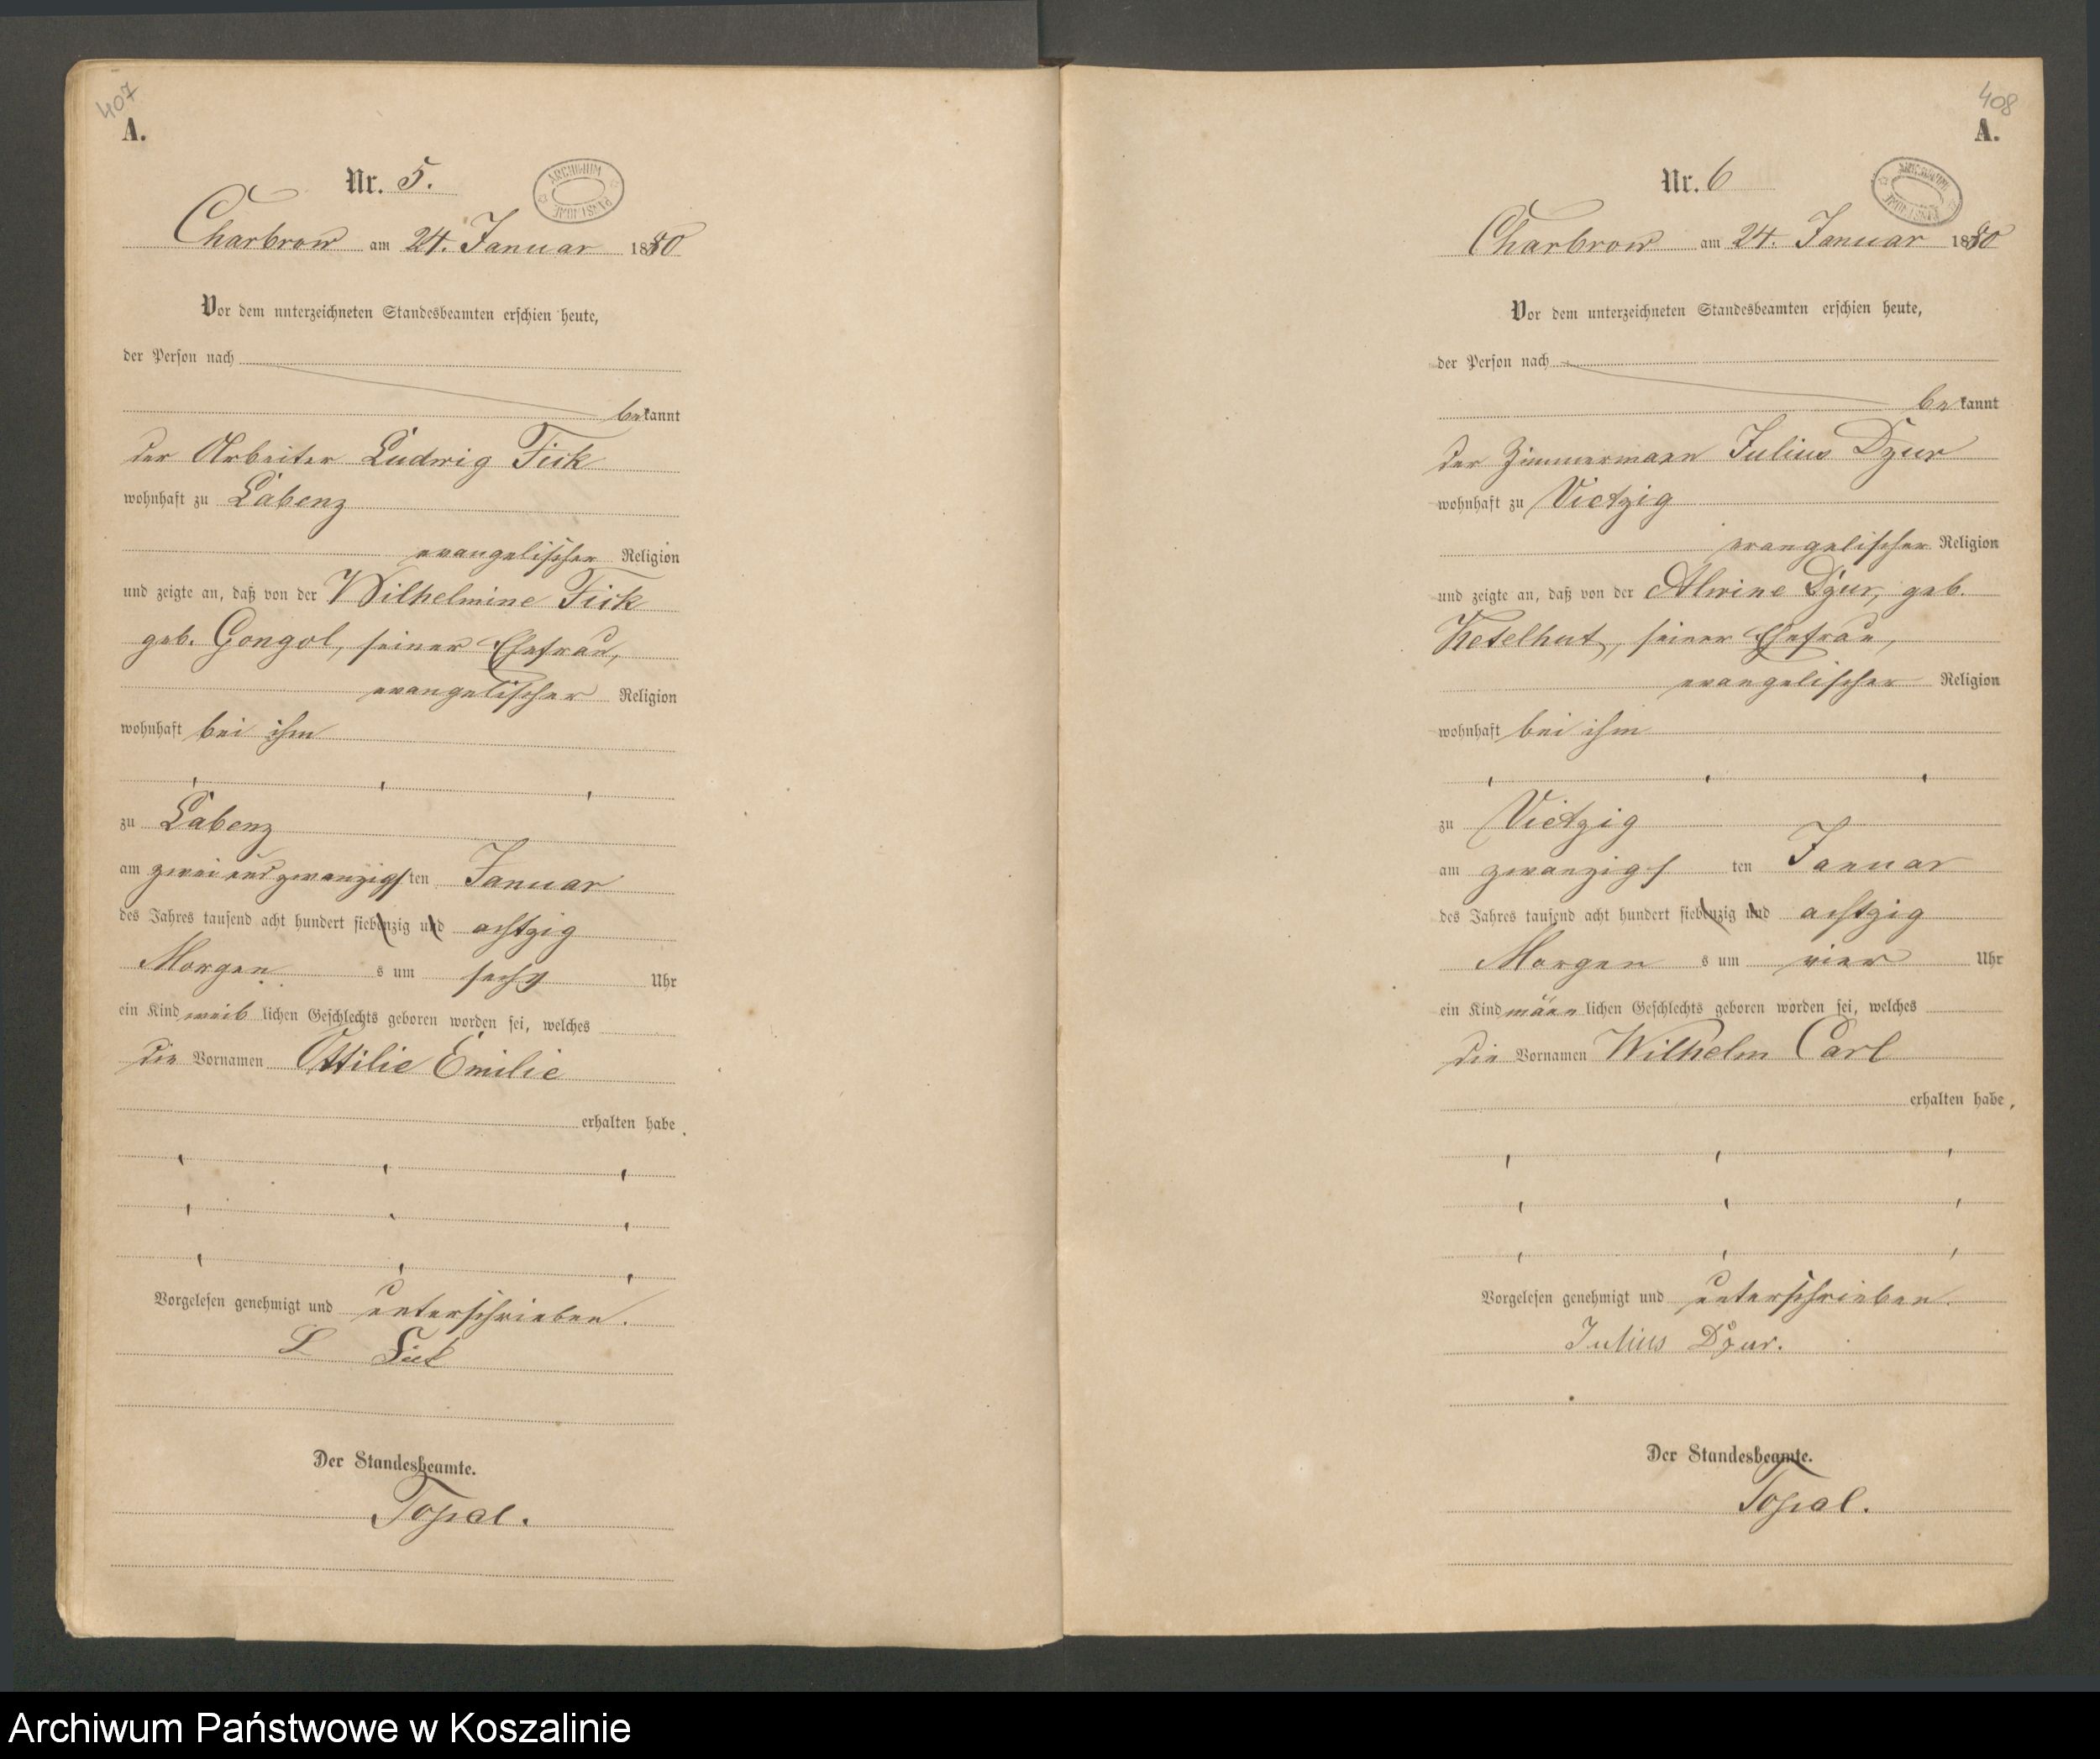 407
A.
Nr. 5.
ARCHIWUM PAŃSTWOWE
Charbrow am 24. Januar 1880
Vor dem unterzeichneten Standesbeamten erschien heute,
der Person nach
bekannt
der Arbeiter Ludwig Fick
wohnhaft zu Labenz
evangelischer Religion
und zeigte an, daß von der Wilhelmine Fick
geb. Gongol, seiner Ehefrau,
evangelischer Religion
wohnhaft bei ihm
zu Labenz
am zwei und zwanzigsten Januar
des Jahres tausend acht hundert siebenzig und achtzig
Morgens um sechs Uhr
ein Kind weiblichen Geschlechts geboren worden sei, welches
die Vornamen Ottilie Emilie
erhalten habe.
Vorgelesen genehmigt und unterschrieben.
L Fick
Der Standesbeamte.
Topal.
408
A.
Nr. 6
ARCHIWUM PAŃSTWOWE
Charbrow am 24. Januar 1880
Vor dem unterzeichneten Standesbeamten erschien heute,
der Person nach
bekannt
der Zimmermann Julius Dzur
wohnhaft zu Vietzig
evangelischer Religion
und zeigte an, daß von der Alwine Dzur, geb.
Ketelhut, seiner Ehefrau,
evangelischer Religion
wohnhaft bei ihm
zu Vietzig
am zwanzigsten Januar
des Jahres tausend acht hundert siebenzig und achtzig
Morgens um vier Uhr
ein Kind männlichen Geschlechts geboren worden sei, welches
die Vornamen Wilhelm Carl
erhalten habe,
Vorgelesen genehmigt und unterschrieben.
Julius Dzur.
Der Standesbeamte.
Topal.
Archiwum Państwowe w Koszalinie